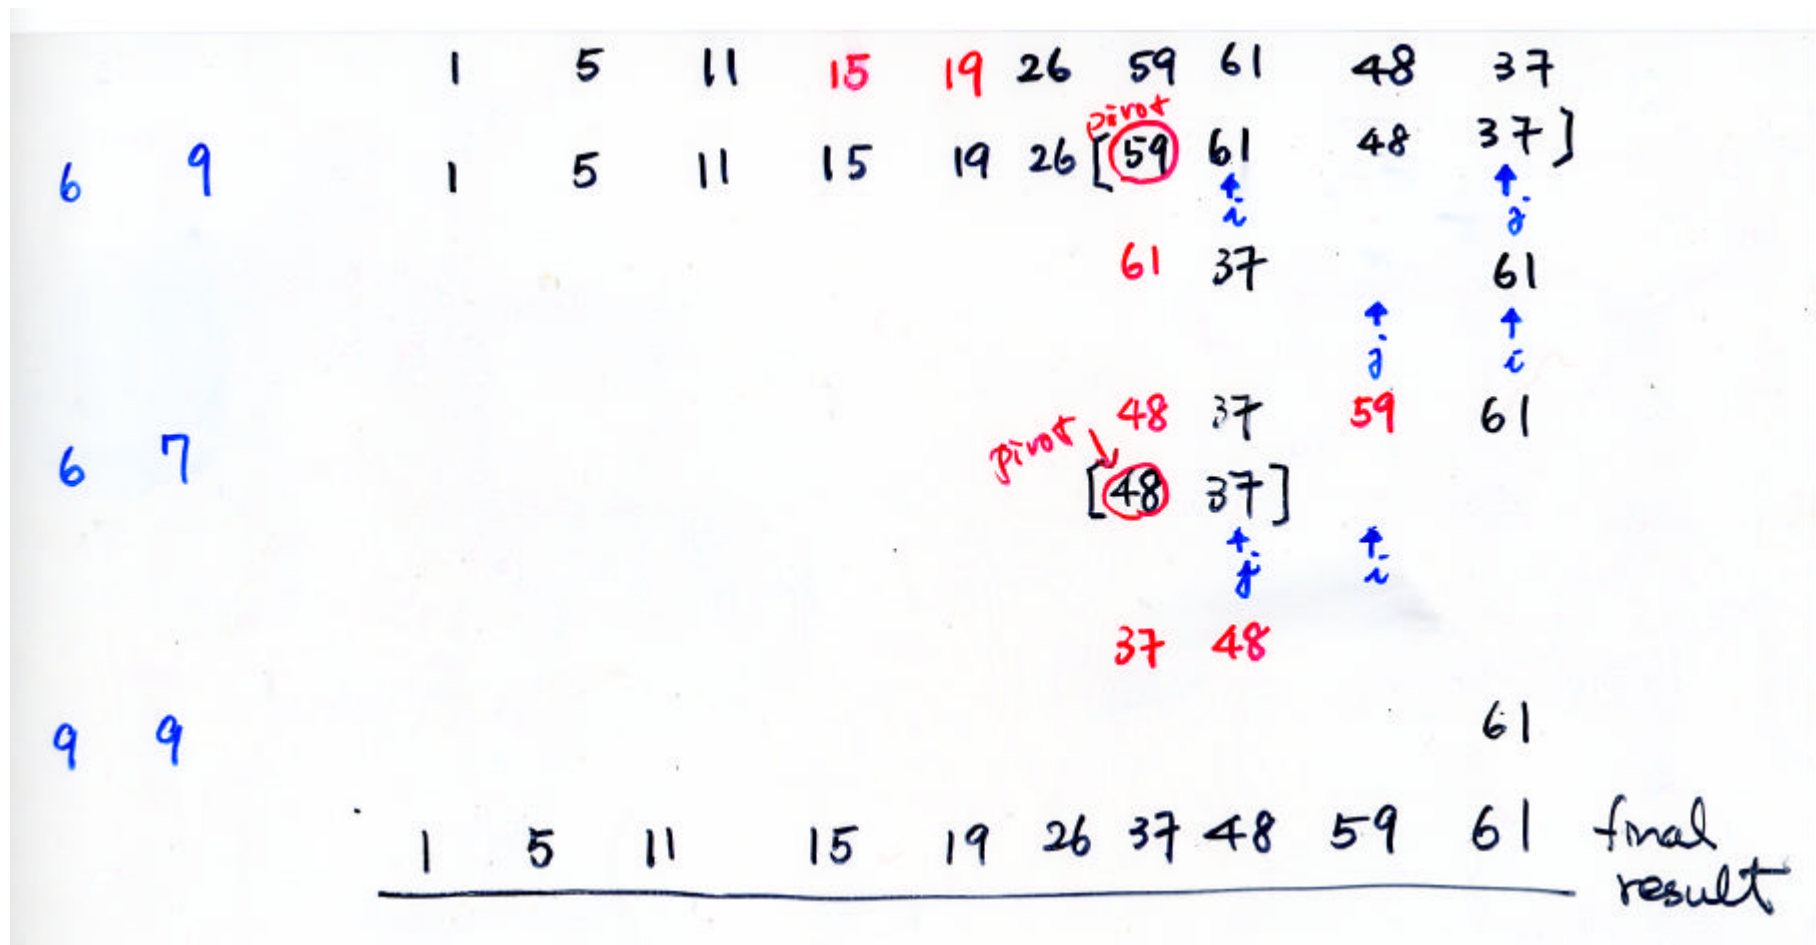 1 5 11 15 19 26 59 61 48 37
pivot
6 9 1 5 11 15 19 26 [59 61 48 37]
i j
61 37 61
j i
48 37 59 61
pivot
6 7 [48 37]
j i
37 48
61
9 9
1 5 11 15 19 26 37 48 59 61 final
result